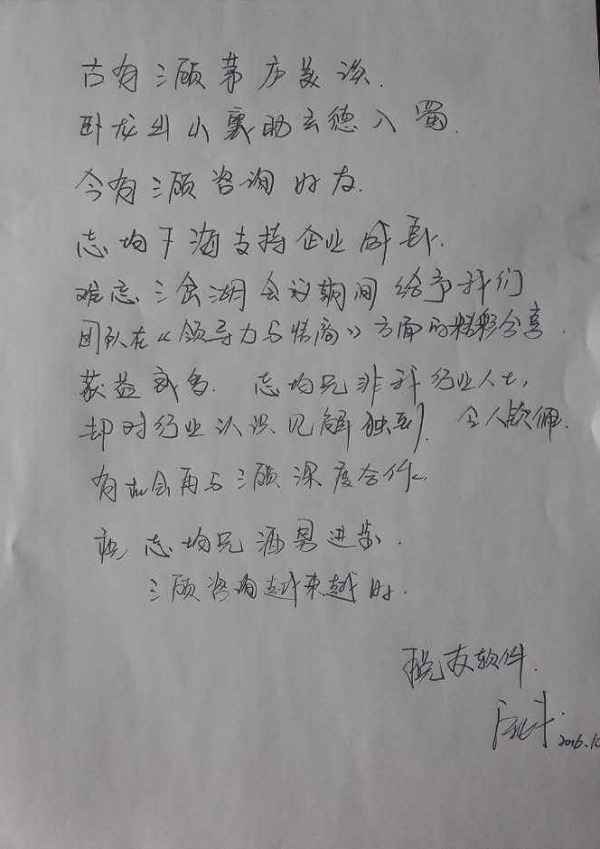 古有三顾茅庐美谈.
卧龙出山襄助玄德入蜀.
今有三顾咨询好友.
志均下海支持企业成长.
难忘三金湖会议期间给予我们
团队在《领导力与情商》方面的精彩分享.
获益颇多. 志均兄非我行业人士,
却对行业认识见解独到, 令人钦佩.
有机会再与三顾深度合作.
祝 志均兄酒量进步.
三顾咨询越来越好.
税友软件.
2016.10